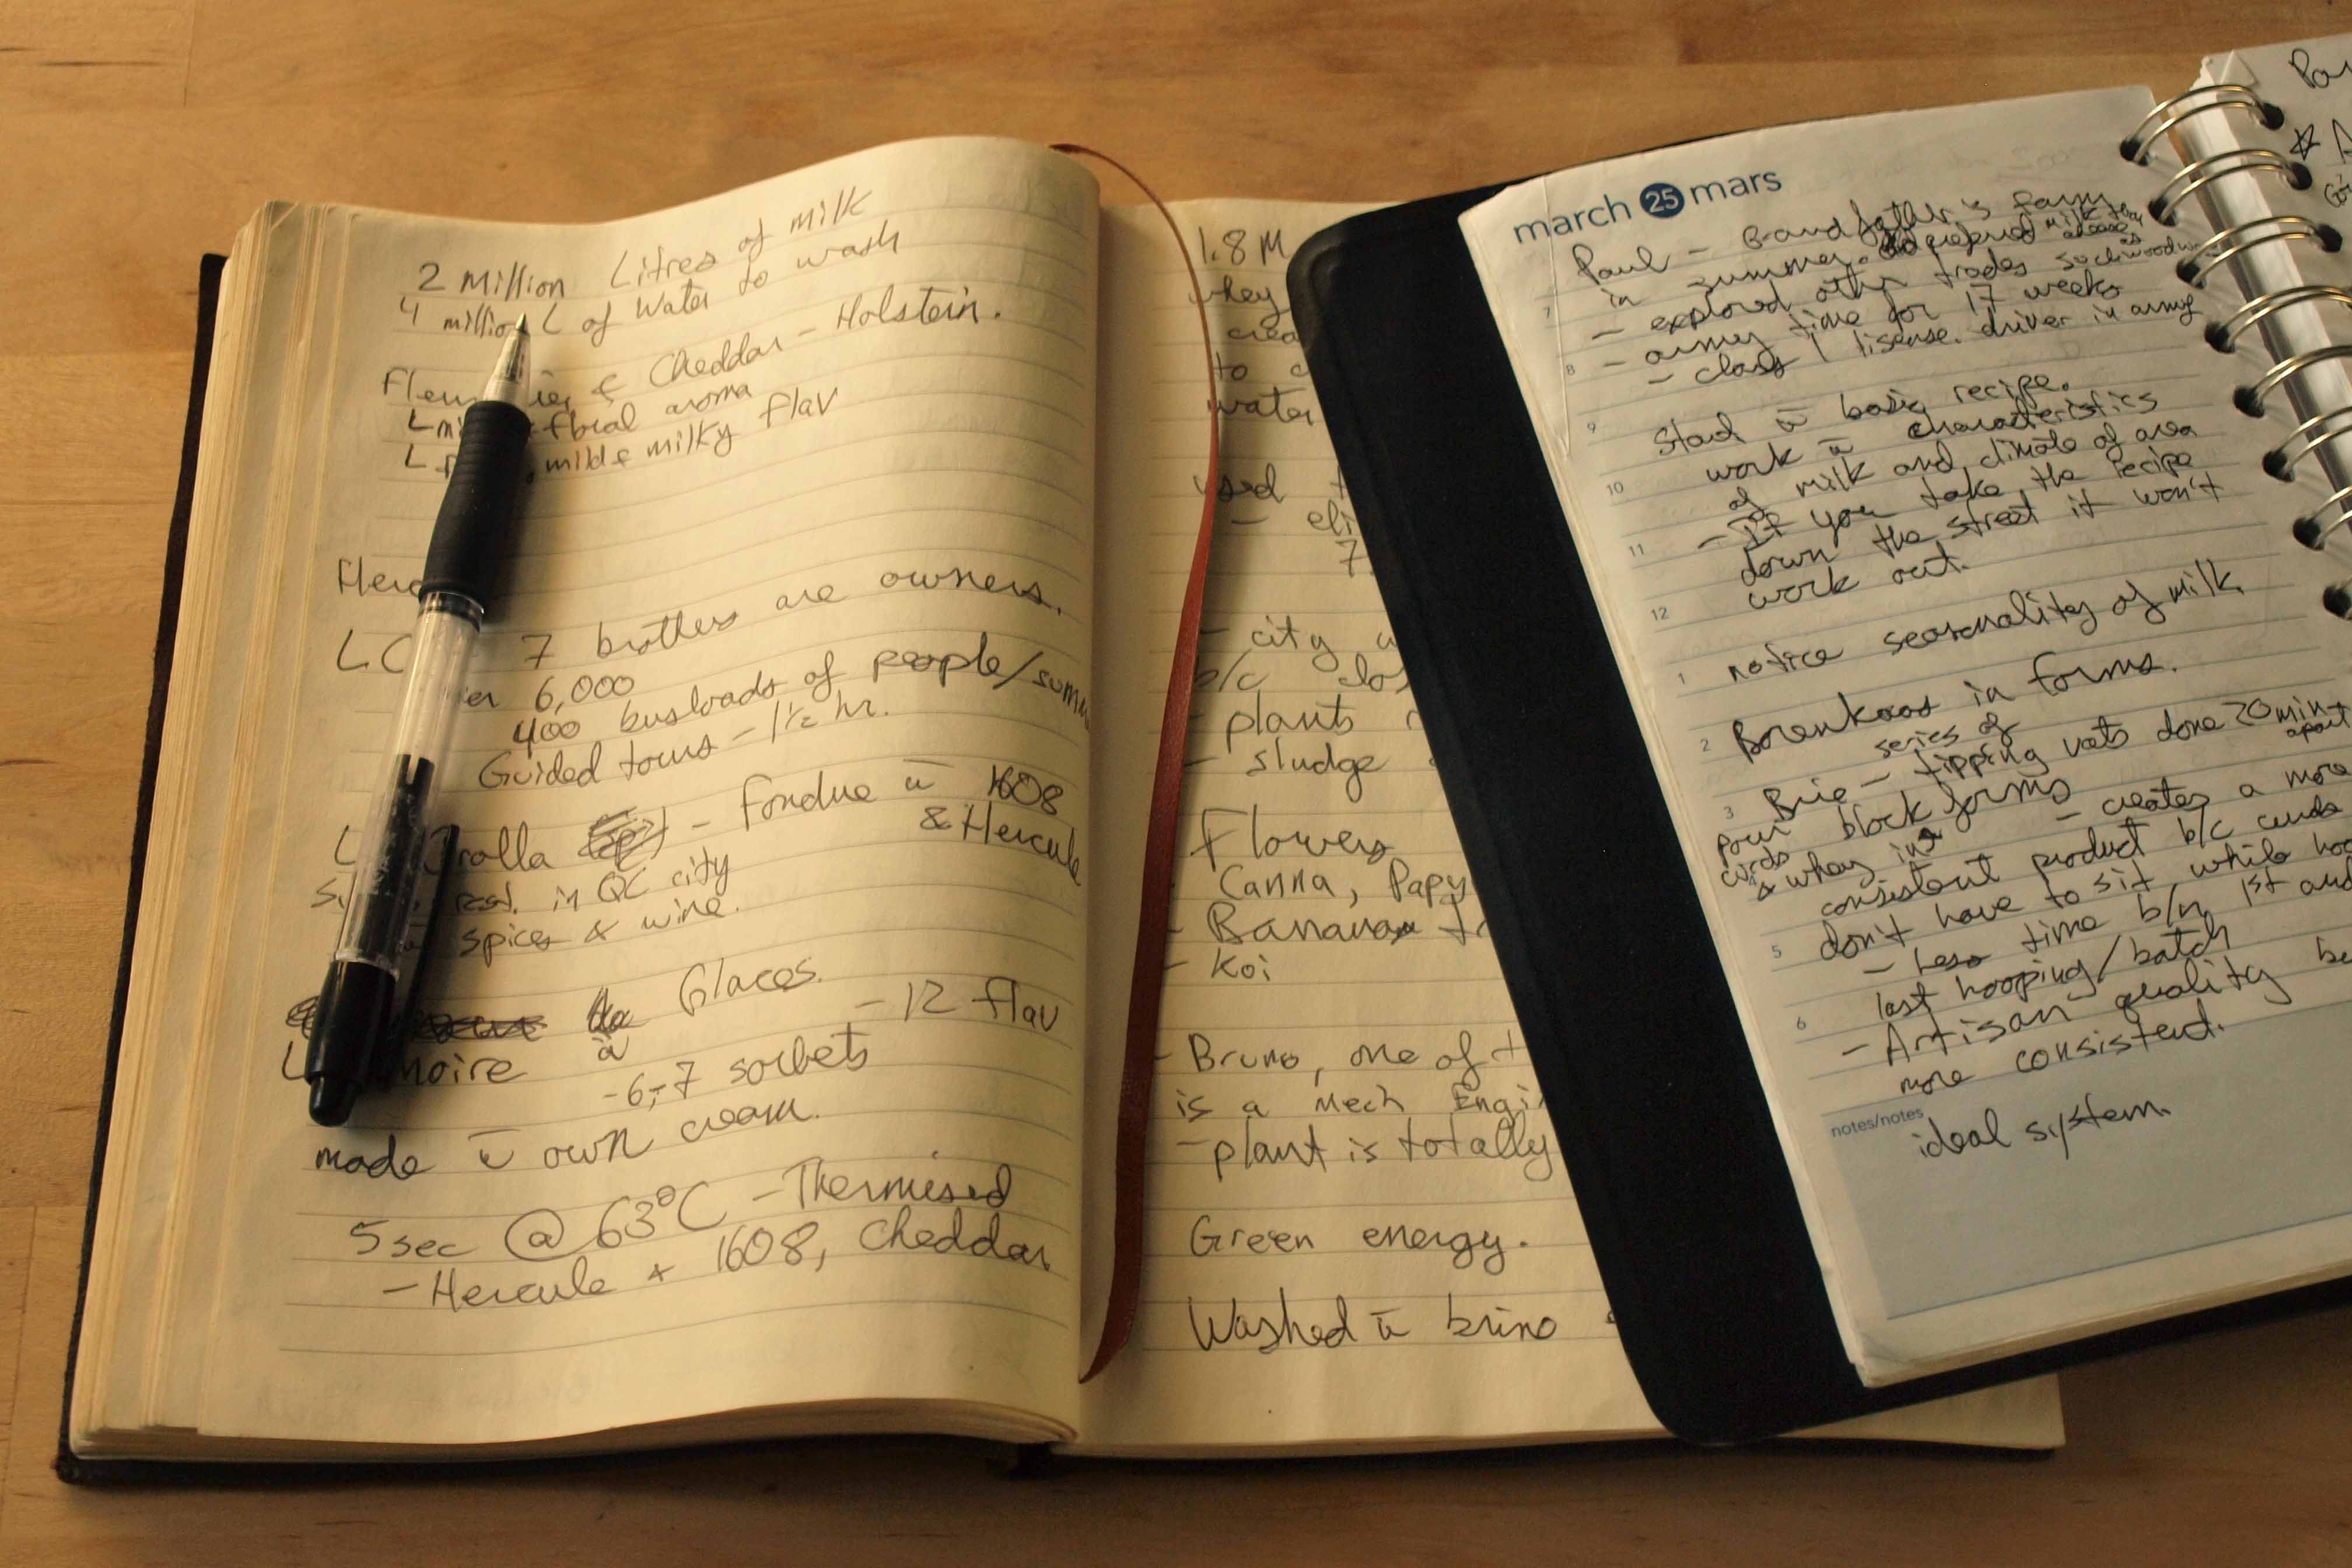 2 Million Litres of milk
4 million L of water to wash
Cheddar - Holstein.
floral aroma
mild & milky flav
7 brothers are owners.
6,000
400 busloads of people/summ
Guided tours - 1½ hr.
- Fondue c̄ 1608
& Hercule
rest. in QC city
spices & wine.
Glaces.
- 12 flav
à
-6,-7 sorbets
made c̄ own cream.
5 sec @ 63°C - Thermised
- Hercule + 1608, Cheddar
1.8 M
whey
to
water
used
7.
- city
b/c
- plants
- sludge
Flowers
- Canna, Papy
- Banana
- Koi
- Bruno, one of
is a Mech Engi
- plant is totally
Green energy.
Washed c̄ brine
march 25 mars
Paul - Grandfather's farm
in summer. preferred milk
- explored other trades such as
7
- army time for 17 weeks
- class 1 lisense. driver in army
8
9
Start c̄ basic recipe.
work c̄ characteristics
10
of milk and climate of area
- If you take the recipe
11
down the street it won't
work out.
12
1 notice seasonality of milk
2 in forms.
series of
3 Brie - tipping vats done 20 min apart
pour block forms
curds & whey in
- creates a more
consistent product b/c curds
5 don't have to sit while
- Less time b/n 1st and
last hooping/batch
6
- Artisan quality
more consistent.
notes/notes
ideal system.